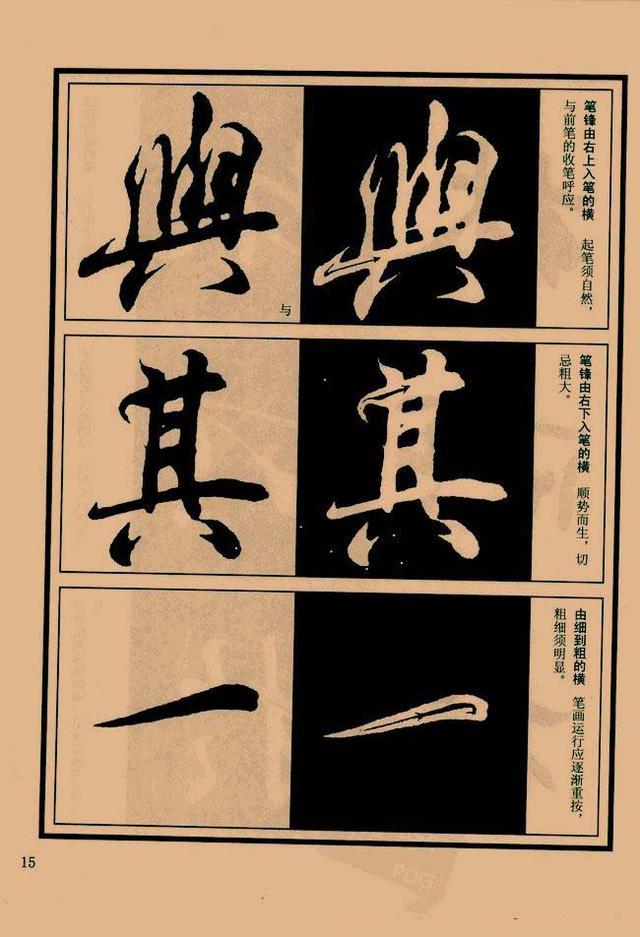 笔锋由右上入笔的横 起笔须自然，
与前笔的收笔呼应。
與
與
与
笔锋由右下入笔的横 顺势而生，切
忌粗大。
其
其
由细到粗的横 笔画运行应逐渐重按，
粗细须明显。
一
一
15
PDG